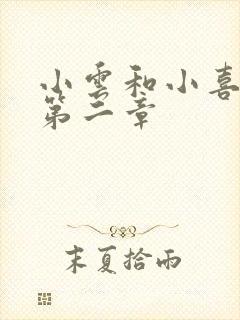 小雲和小喜
第二章
末夏拾雨